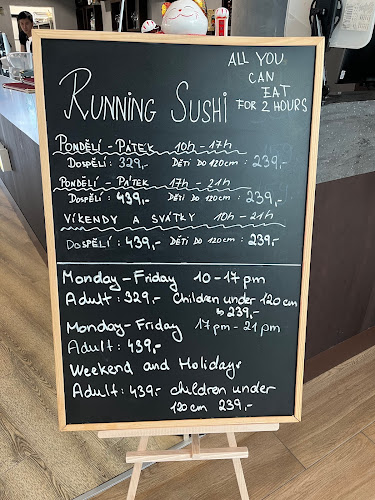 RUNNING SUSHI
ALL YOU
CAN
EAT
FOR 2 HOURS
PONDĚLÍ - PÁTEK 10h - 17h
DOSPĚLÍ : 329,- DĚTI DO 120cm : 239,-
PONDĚLÍ - PÁTEK 17h - 21h
DOSPĚLÍ : 439,- DĚTI DO 120cm : 239,-
VÍKENDY A SVÁTKY 10h - 21h
DOSPĚLÍ : 439,- DĚTI DO 120cm : 239,-
Monday - Friday 10 - 17 pm
Adult : 329,- Children under 120 cm
↳ 239,-
Monday - Friday 17 pm - 21 pm
Adult : 439,-
Weekend and Holidays
Adult : 439,- children under
120 cm 239,-